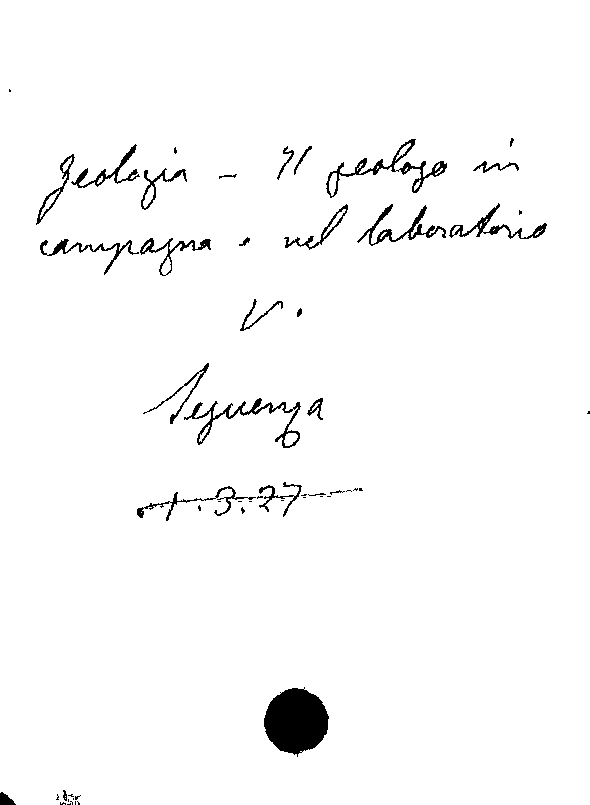 Geologia - Il geologo in
campagna e nel laboratorio
V.
Seguenza
1.3.27